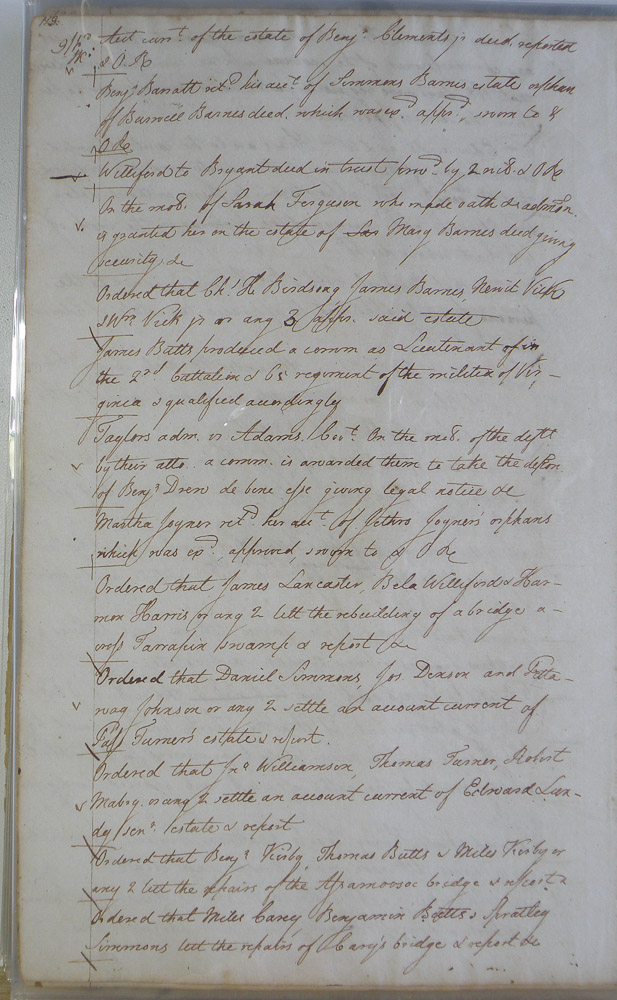 Acct curr.t of the estate of Benj.a Clements jr deed. reported
& O.R
Benj.a Barratt ret.d his acc.t of Simmons Barnes estate orphan
of Burwell Barnes deed. which was ex.d appr.d, sworn to &
O.R
Williford to Bryant deed in trust prov.d by 2 wits. & O R
On the mo.n of Sarah Ferguson who made oath &c admon.
is granted her on the estate of Sar Mary Barnes deed giving
security &c
Ordered that Ch.s H Birdsong James Barnes, Newit Vick
& Wm. Vick jr or any 3 appr. said estate
James Batts produced a comm as Lieutenant of in
the 2nd battalion & 65 regiment of the militia of Vir-
ginia & qualified accordingly
Taylors adm. vs Adams. Cov.t On the mo.n of the deft
by their atto. a comm. is awarded them to take the depon
of Benj.a Drew de bene esse giving legal notice &c
Martha Joyner ret.d her acc.t of Jethro Joyner's orphans
which was ex.d, approved, sworn to & O R
Ordered that James Lancaster, Bela Williford & Har-
mon Harris or any 2 lett the rebuilding of a bridge a-
cross Tarrapin swamp & report &c
Ordered that Daniel Simmons, Jos. Denson and Petta-
way Johnson or any 2 settle an account current of
Pass Turner's estate & report.
Ordered that Jno. Williamson, Thomas Turner, Robert
Mabry or any 2 settle an account current of Edward Lun-
dy senr. estate & report
Ordered that Benj.a Kirby, Thomas Butts & Miles Kirby or
any 2 lett the repairs of the Assamoosoc bridge & report &
Ordered that Miles Cary Benjamin Butts & Spratley
Simmons lett the repairs of Cary's bridge & report &c